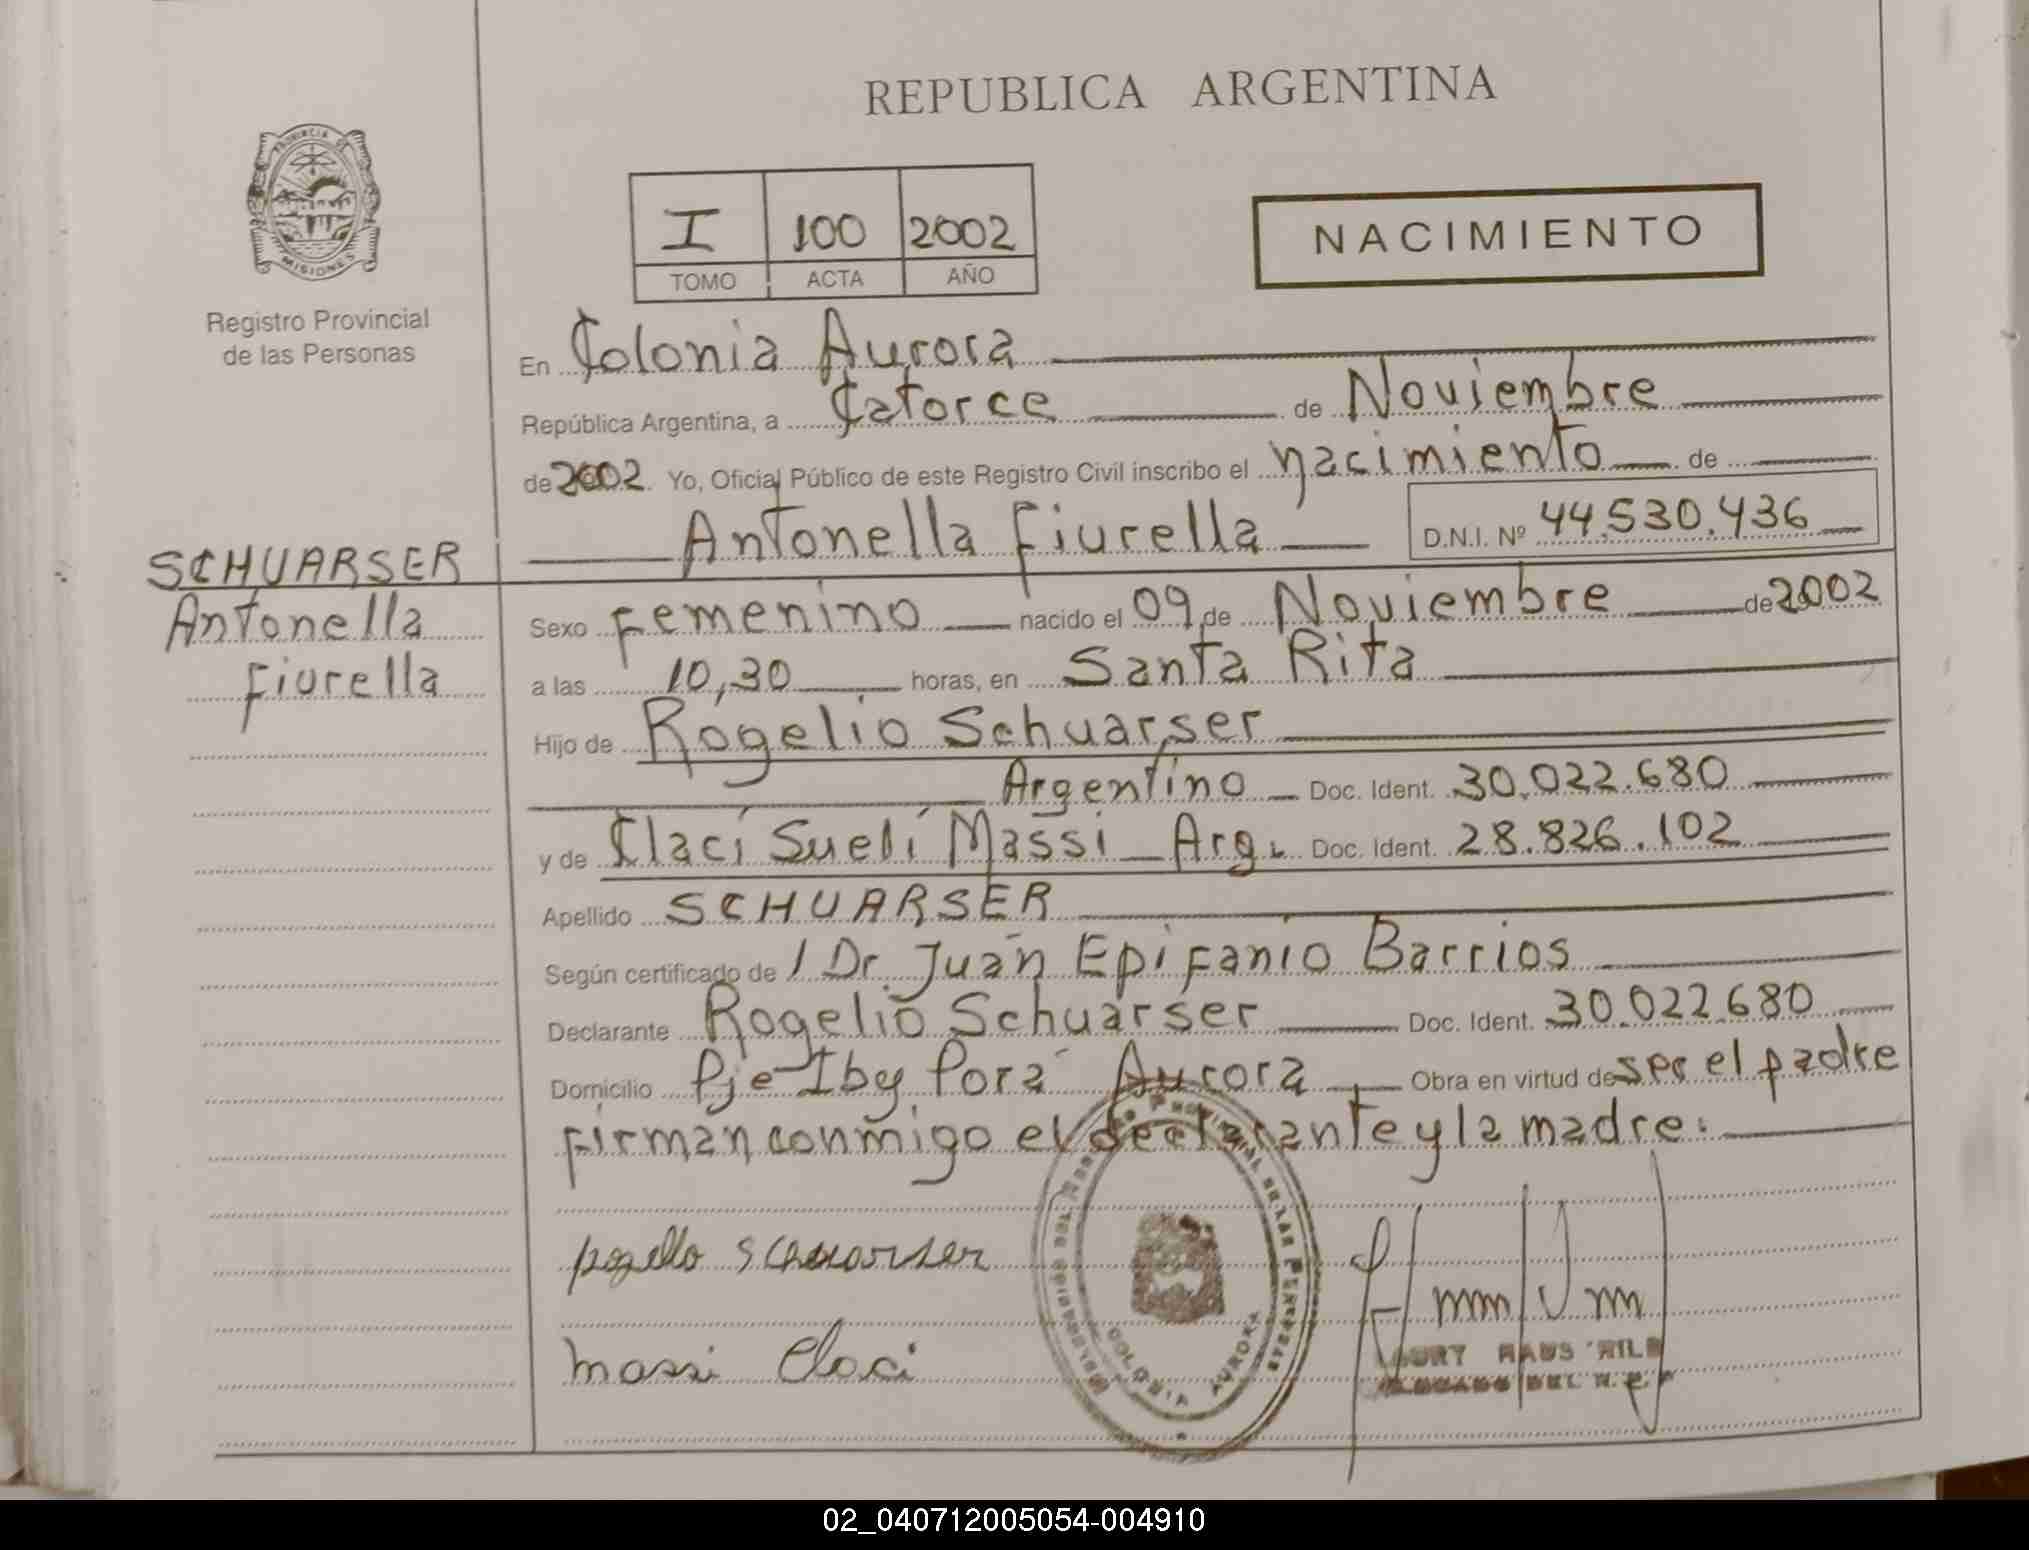 REPUBLICA ARGENTINA
PROVINCIA DE
MISIONES
Registro Provincial
de las Personas
I 100 2002
TOMO ACTA AÑO
NACIMIENTO
En Colonia Aurora
República Argentina, a Catorce de Noviembre
de 2002. Yo, Oficial Público de este Registro Civil inscribo el nacimiento de
Antonella Fiurella D.N.I. Nº 44.530.436
SCHUARSER
Antonella
Fiurella
Sexo Femenino nacido el 09 de Noviembre de 2002
a las 10,30 horas, en Santa Rita
Hijo de Rogelio Schuarser
Argentino Doc. Ident. 30.022.680
y de Clací Suelí Massi Arg. Doc. Ident. 28.826.102
Apellido SCHUARSER
Según certificado de / Dr. Juan Epifanio Barrios
Declarante Rogelio Schuarser Doc. Ident. 30.022.680
Domicilio Pje Iby Porá Aurora Obra en virtud de ser el padre
firman conmigo el declarante y la madre:
schuarser
massi Claci
COLONIA AURORA
02_040712005054-004910